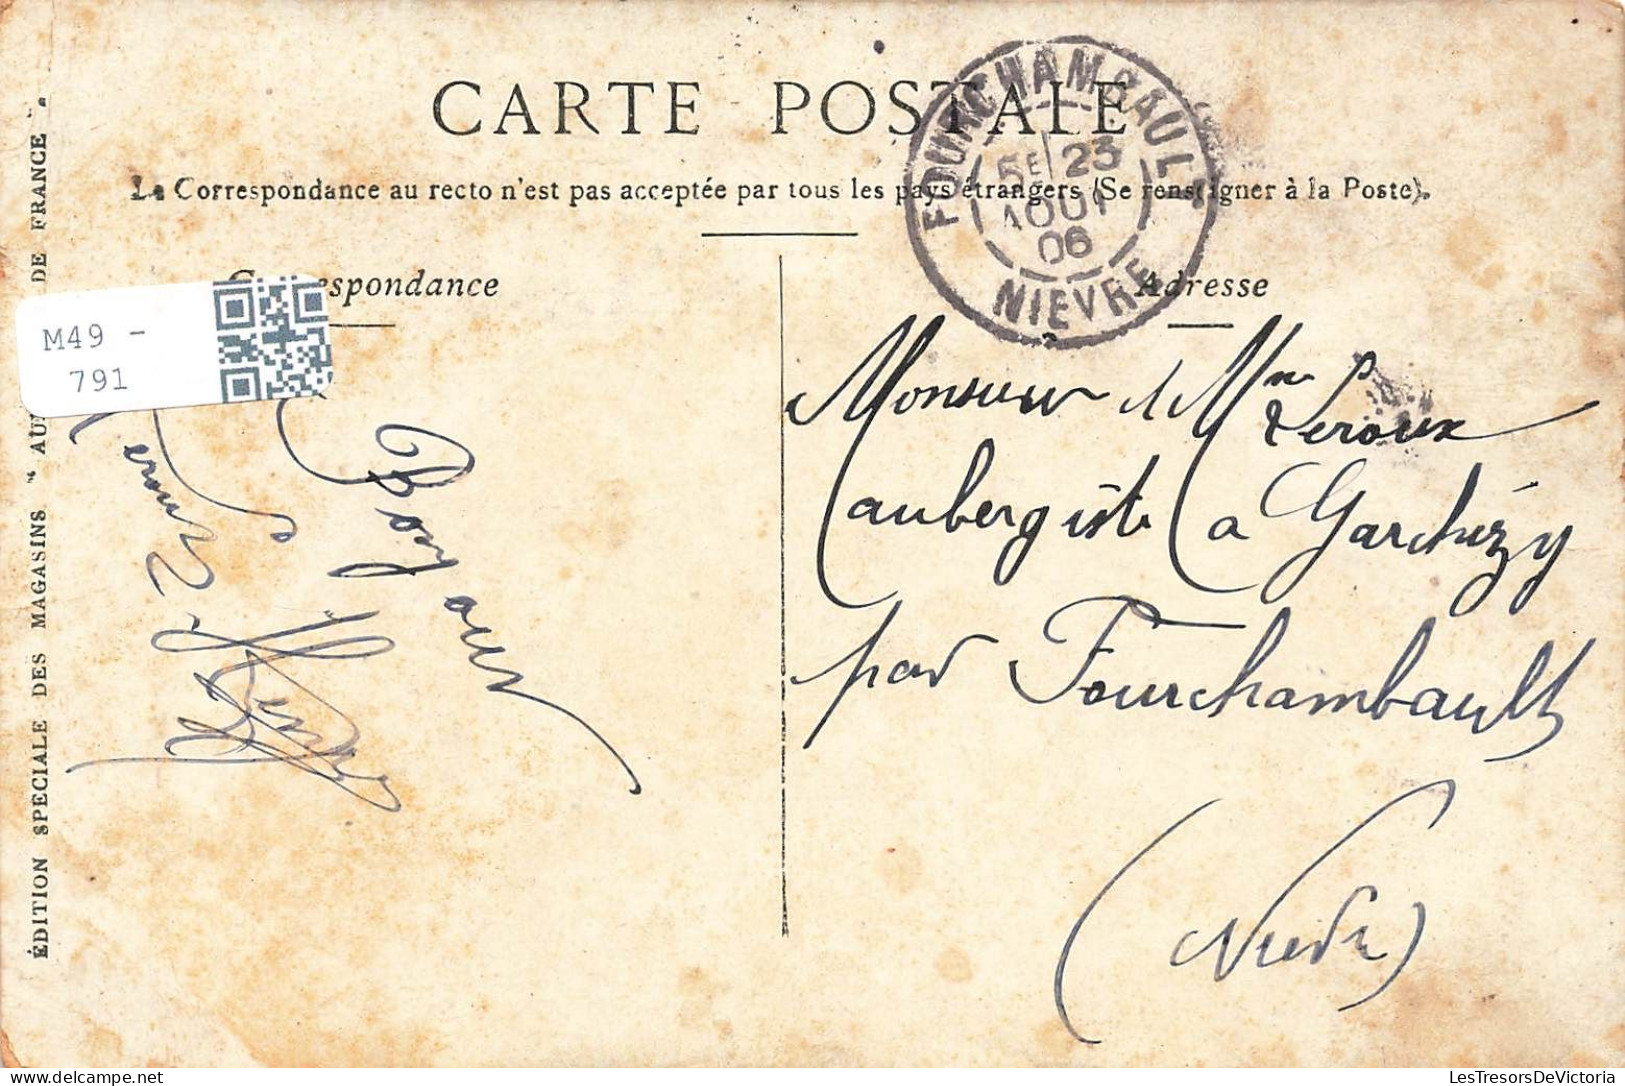 CARTE POSTALE
La Correspondance au recto n'est pas acceptée par tous les pays étrangers (Se renseigner à la Poste).
FOURCHAMBAULT
5E 23
AOUT
06
NIEVRE
spondance
Adresse
M49 -
791
Monsieur & Mme Leroux
aubergiste a Garchizy
par Fourchambault
(Nievre)
Bonjour
ÉDITION SPECIALE DES MAGASINS " AU DE FRANCE "
LesTresorsDeVictoria